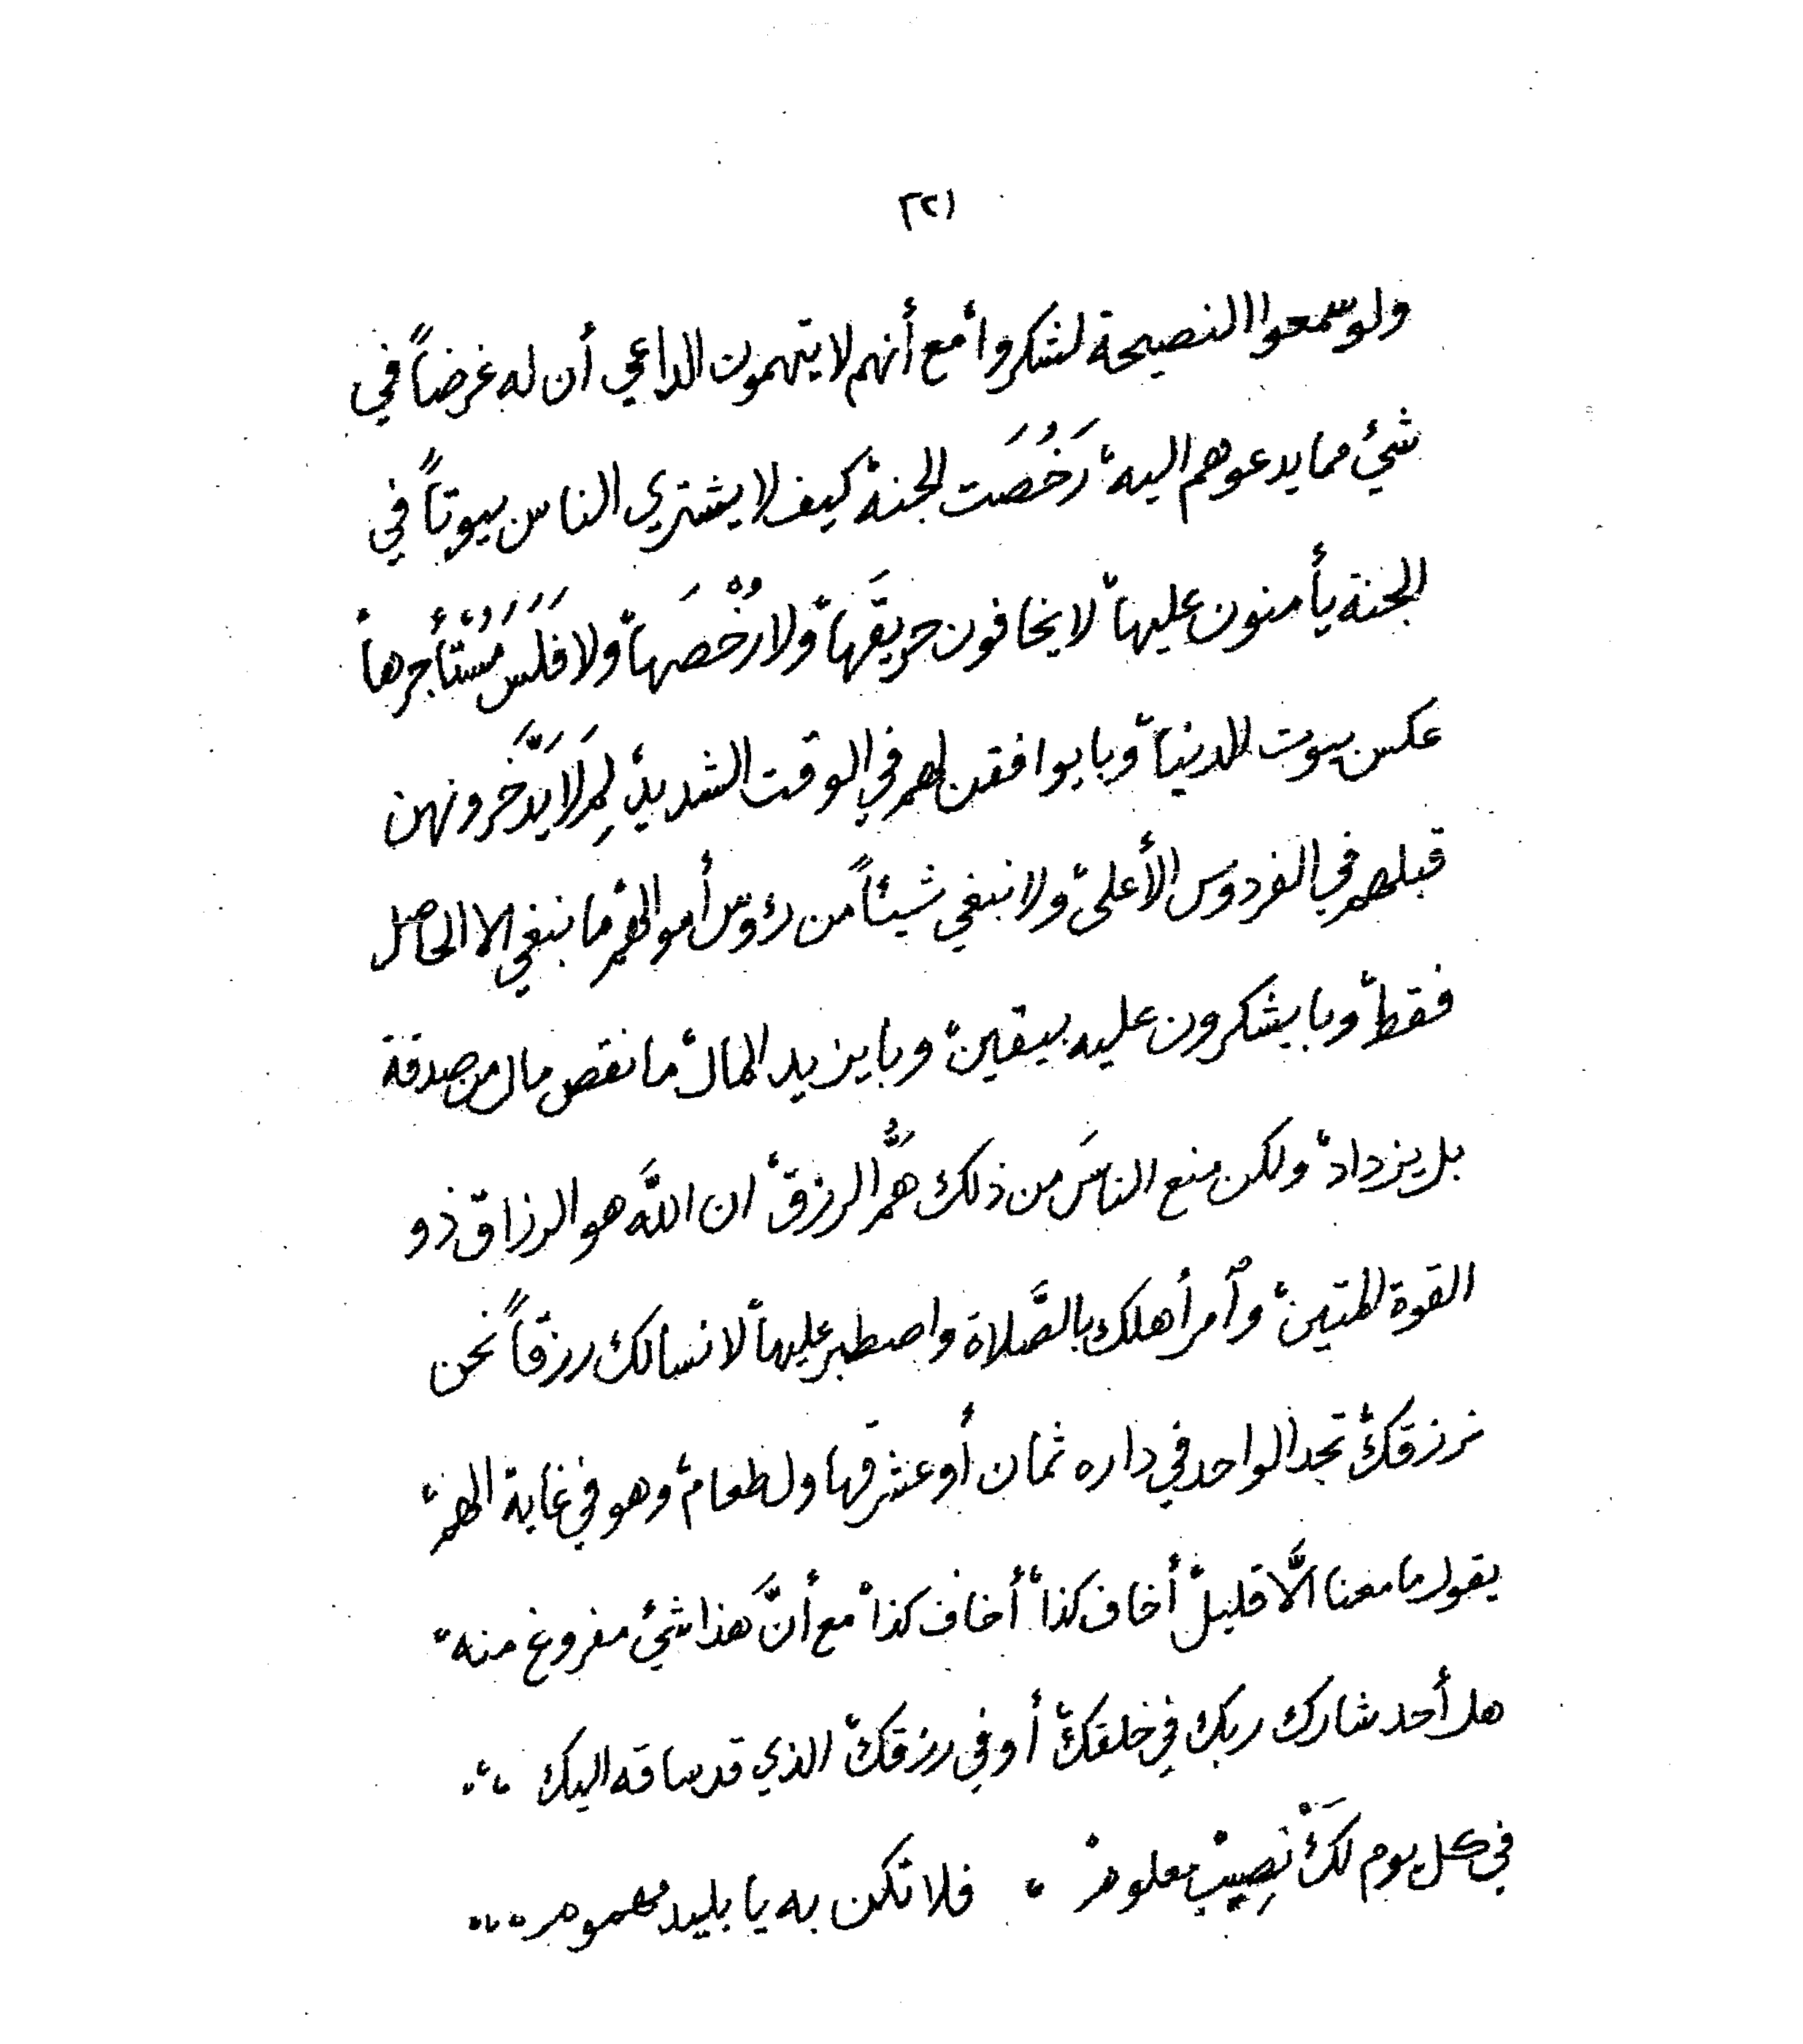 ٣٢١
ولو سمعوا النصيحة لشكروا، مع أنهم لا يتهمون الداعي أن له غرضاً في
شئ مما يدعوهم اليه، رَخُصَت الجنة، كيف لا يشتري الناس بيوتاً في
الجنة يأمنون عليها، لا يخافون حريقَها، ولا رُخْصَها، ولا فَلَسَ مُسْتَأجرها،
عكس بيوت الدنيا، وبايوافقن لهم في الوقت الشديد، لِمَ لَا يَدَّخرونهن
قبلهم في الفردوس الأعلى، ولا نبغي شيئاً من رؤوس أموالهم، ما نبغي الا الحاصل
فقط، وبايشكرون عليه بيقين، وبايزيد المال، ما نقص مال من صدقة
بل يزداد، ولكن منع الناسَ من ذلك هَمُّ الرزق، ان اللَّه هو الرزاق ذو
القوة المتين، وأمر أهلك بالصَّلاة واصطبر عليها، لا نسالك رزقاً نحن
نرزقك، تجد الواحد في داره ثمان أو عشر قهاول طعام، وهو في غاية الهم،
يقول ما معنا الَّا قليل، أخاف كذا، أخاف كذا، مع أنَّ هذا شئ مفروغ منه،
هل أحد شارك ربك في خلقك، أو في رزقك، الذي قد ساقه اليك ،،،
في كل يوم لَكْ نصِيبْ معلومْ ، فلا تكن به يا بليد مهموم ،،،